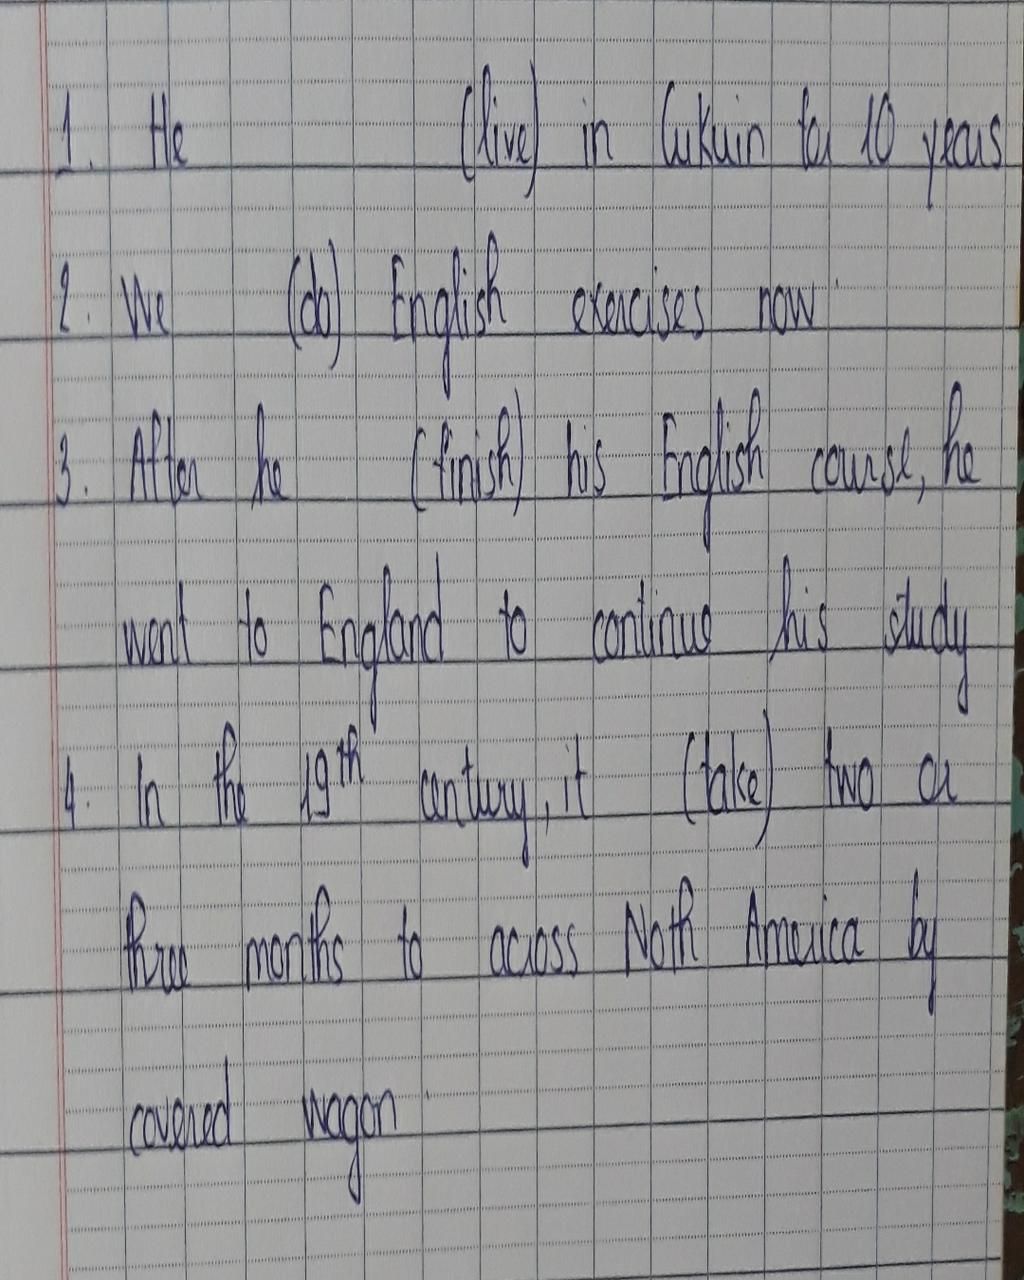 1. He (live) in Cukuin for 10 years
2. We (do) English exercises now.
3. After he (finish) his English course, he
went to England to continue his study
4. In the 19th century, it (take) two or
three months to across Noth America by
covered wagon.